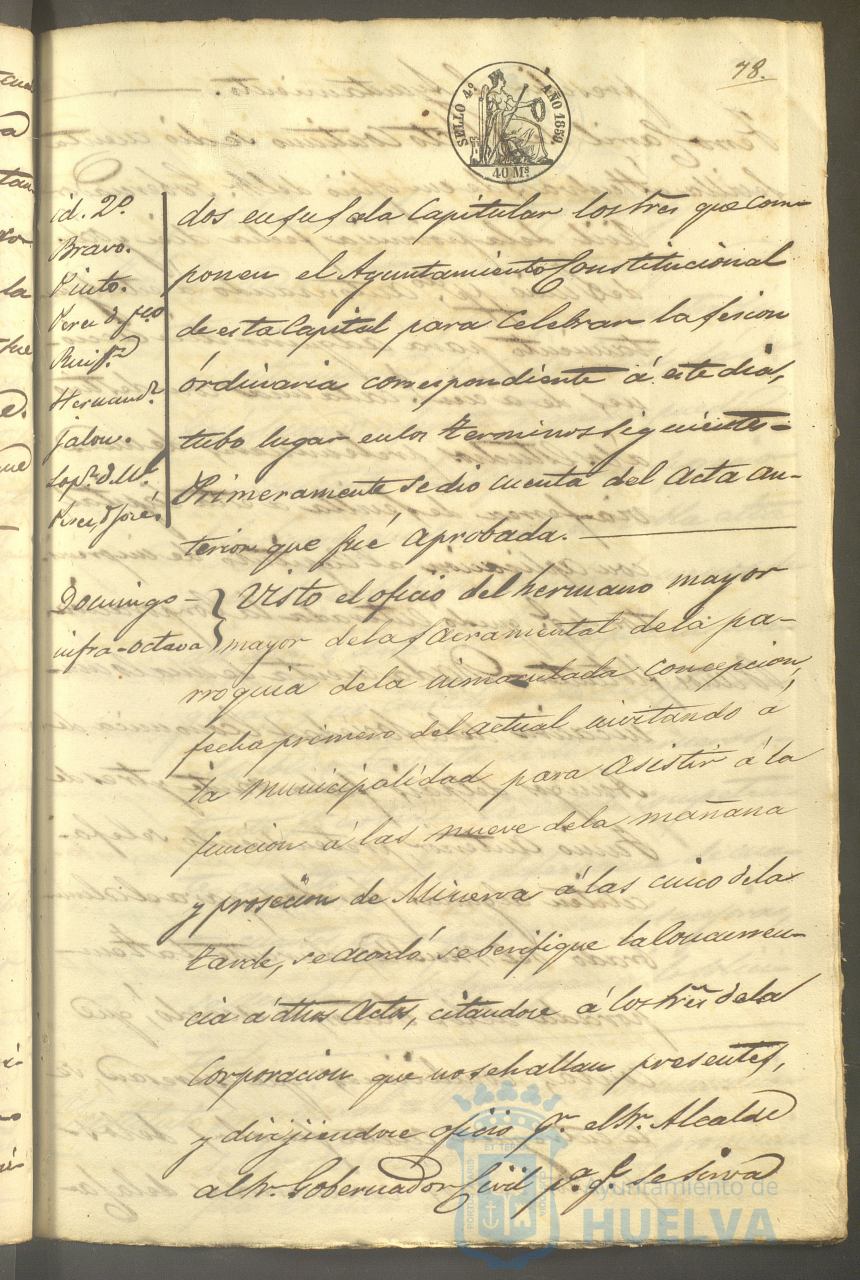 78.
SELLO 4º AÑO 1859.
40 Ms
id. 2º
Bravo.
Pinto.
Perez d. Fco
Ruiz
Hernandz
Jalon.
Lopz. d. Ml
Perez d José.
dos en su sala Capitular los Sres que com-
ponen el Ayuntamiento Constitucional
de esta Capital para celebrar la sesion
órdinaria correspondiente á este dia,
tubo lugar en los terminos siguientes=
Primeramente se dio cuenta del acta an-
terior que fué aprobada.
Domingo -
infra-octava
Visto el oficio del hermano mayor
mayor de la sacramental de la pa-
rroquia de la inmaculada concepcion,
fecha primero del actual invitando á
la municipalidad para asistir á la
funcion á las nueve de la mañana
y prosecion de Minerva á las cinco de la
tarde, se acordó se berifique la concurren-
cia á dhos actos, citandose á los Sres de la
Corporacion que no se hallan presentes,
y dirijiendose oficio pr. el Sr. Alcalde
al Sr. Gobernador Civil pa. q. se sirva
Ayuntamiento de
HUELVA